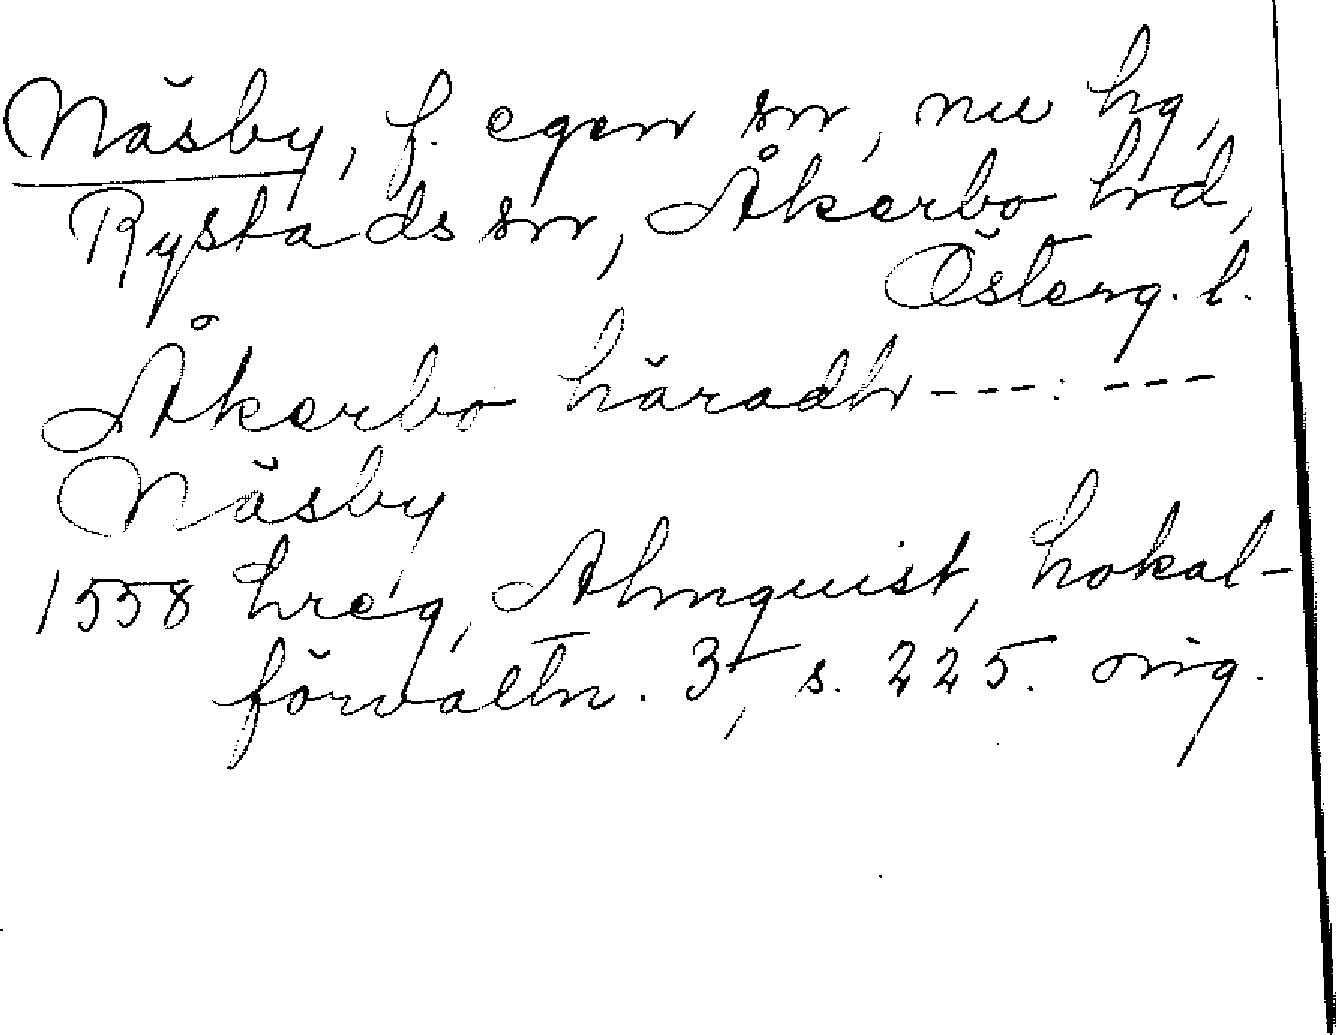 Näsby, f. egen sn, nu hg,
Rystads sn, Åkerbo hd,
Österg. l.
Åkerbo häradh ---: ---
Näsby
1558 hreg, Almquist, Lokal-
förvaltn. 3, s. 225. orig.